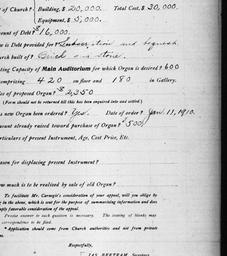 of Church?- Building, $20,000. Total Cost, $30,000.
Equipment, $5,000.
Amount of Debt? $16,000.
How is Debt provided for? Subscription and bequest
Church built of? Brick and Stone.
Seating Capacity of Main Auditorium for which Organ is desired? 600
Comprising 420 on floor and 180 in Gallery.
Price of proposed Organ? $2,350
(Form should not be returned till this has been inquired into and settled)
Has new Organ been ordered? Yes. Date of order? Jan. 11, 1910.
Amount already raised toward purchase of Organ? $500
Particulars of present Instrument, Age, Cost Price, Etc.
Reason for displacing present Instrument?
How much is to be realised by sale of old Organ?
To facilitate Mr. Carnegie's consideration of your appeal, will you oblige by
in the above, which is sent for the purpose of summarising information and does
imply favorable consideration of the appeal.
Precise answer to each question is necessary. The issuing of blanks may
correspondence to be filed.
* Application should come from Church authorities and not from private
Respectfully,
JAS. BERTRAM, Secretary